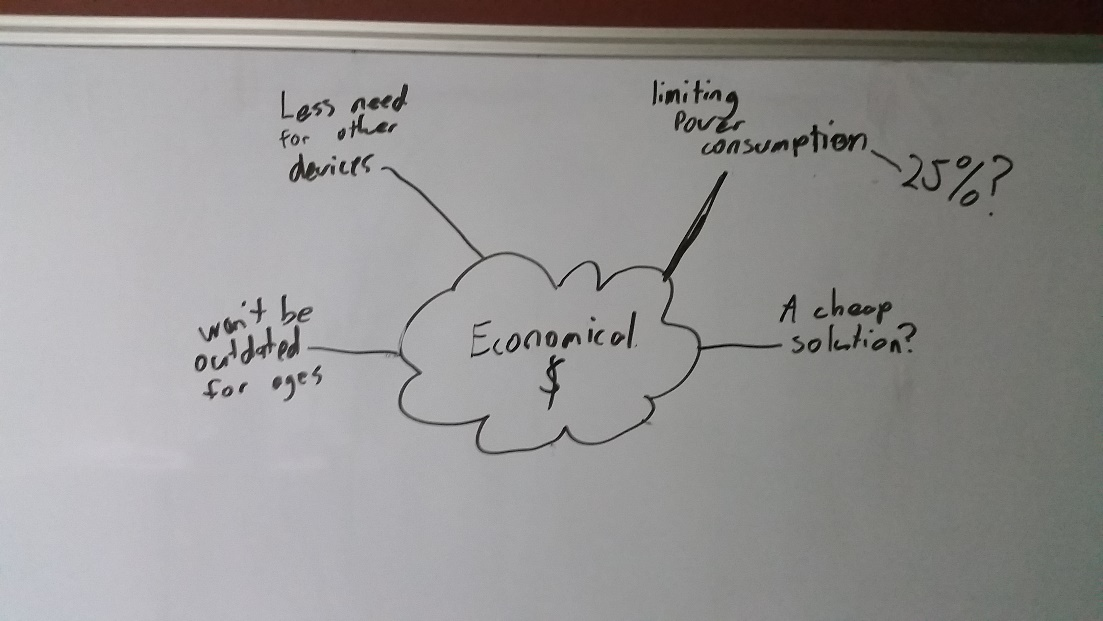 Less need
for other
devices
limiting
Power
consumption
25%?
won't be
outdated
for ages
Economical
$
A cheap
solution?